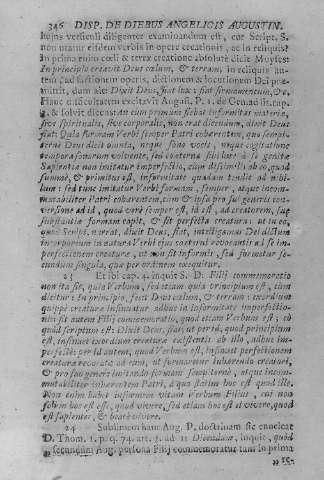 346 DISP. DE DIEBUS ANGELICIS AUGUSTIN.
hujus versiculi diligenter examinandum est, cur Script. S.
non utatur eisdem verbis in opere creationis, ac in reliquis?
In prima enim cœli & terræ creatione absolute dicit Moyses:
In principio creavit Deus cœlum, & terram, in reliquis au-
tem sad factionem operis, dictionem & locutionem Dei præ-
mittit, dum ait: Dixit Deus, fiat lux: fiat firmamentum, &c.
Hanc difficultatem excitavit August. l. 1. de Gen. ad lit. cap.
& solvit dicens: an cum primum fiebat informitas materiæ,
sive spiritalis, sive corporalis, non erat dicendum, dixit Deus
fiat: Quia formam Verbi semper Patri cohærentem, quo sempi-
terne Deus dicit omnia, neque sono vocis, neque cogitatione
tempora sonorum volvente, sed coæterna sibi luce a se genitæ
Sapientiæ non imitatur imperfectio, cum dissimilis ab eo, quod
summe, & primitus est, informitate quadam tendit ad nihi-
lum: sed tunc imitatur Verbi formam, semper, atque incom-
mutabiliter Patri cohærentem, cum & ipsa pro sui generis con-
versione ad id, quod vere semper est, id est, ad creatorem, suæ
substantiæ formam capit, & fit perfecta creatura: ut in eo,
quod Script. narrat, dixit Deus, fiat, intelligamus Dei dictum
incorporeum in natura Verbi ejus coæterni revocantis ad se im-
perfectionem creaturæ, ut non sit informis, sed formetur se-
cundum singula, quæ per ordinem exequitur.
23 Et ibi cap. 4. inquit S. D. Filii commemoratio
non ita sit, quia Verbum, sed etiam quia principium est, cum
dicitur: In principio, fecit Deus cœlum, & terram: exordium
quippe creaturæ insinuatur adhuc in informitate imperfectio-
nis: fit autem Filii commemoratio, quod etiam Verbum est, eo
quod scriptum est: Dixit Deus, fiat, ut per id, quod principium
est, insinuet exordium creaturæ existentis ab illo, adhuc im-
perfectæ: per id autem, quod Verbum est, insinuet perfectionem
creaturæ revocatæ ad eum, ut formaretur inhærendo creatori,
& pro suo genere imitando formam sempiterne, atque incom-
mutabiliter inhærentem Patri, a quo statim hoc est quod ille.
Non enim habet informem vitam Verbum Filius, cui non
solum hoc est esse, quod vivere, sed etiam hoc est ei vivere, quod
est sapienter, & beate vivere.
24 Sublimem hanc Aug. P. doctrinam sic enucleat
D. Thom. 1. p. q. 74. art. 3. ad 11 Dicendum, inquit, quod
» secundum Aug. persona Filii commemoratur tam in prima